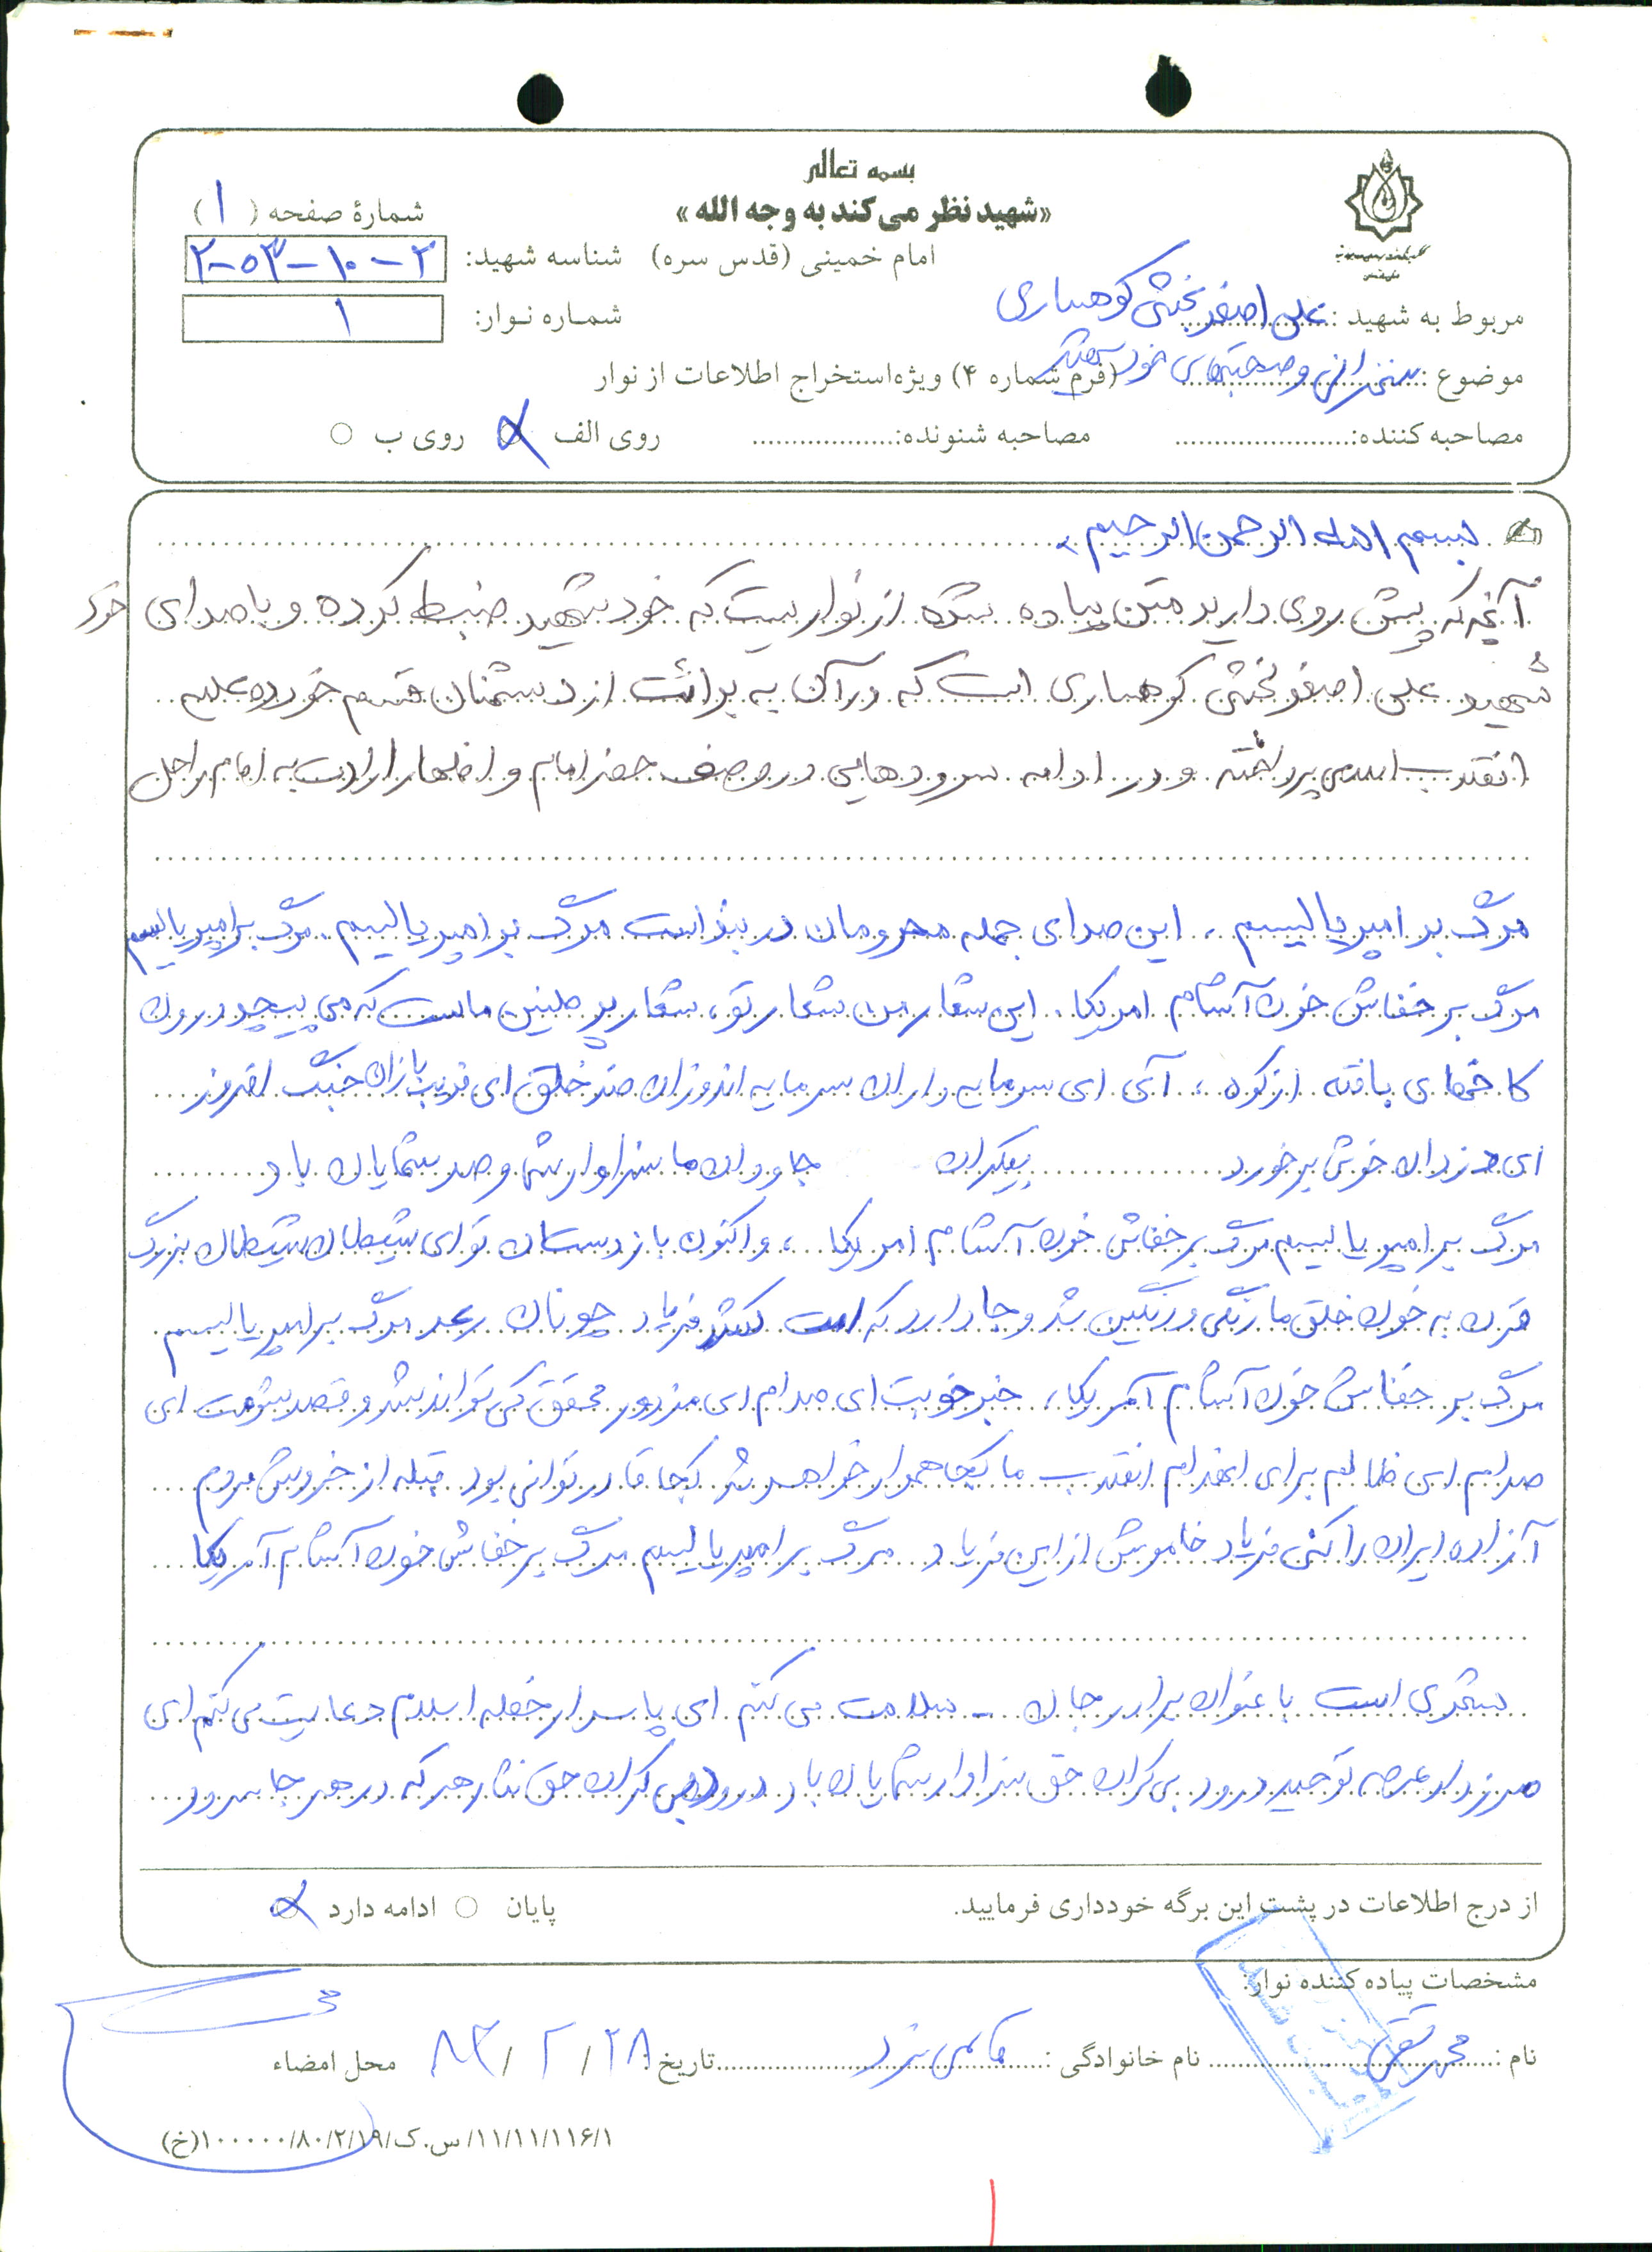 بسمه تعالی
«شهید نظر می‌کند به وجه الله»
شمارهٔ صفحه (۱)
امام خمینی (قدس سره)
شناسه شهید: ۲-۱۰-۵۳-۲
مربوط به شهید: علی اصغر بخشی کوهساری
شماره نوار: ۱
موضوع: سخنرانی و صحبتهای خود شهید (فرم شماره ۴) ویژه استخراج اطلاعات از نوار
مصاحبه کننده: مصاحبه شنونده: روی الف روی ب
بسم الله الرحمن الرحیم
آنچه که پیش روی دارید متن پیاده شده از نواریست که خود شهید ضبط کرده و با صدای خود
شهید علی اصغر بخشی کوهساری است که در آن به برائت از دشمنان قسم خورده علیه
انقلاب اسلامی پرداخته و در ادامه سرودهایی در وصف حضرت امام و اظهار ارادت به امام راحل
مرگ بر امپریالیسم، این صدای جمله محرومان در بند است مرگ بر امپریالیسم. مرگ بر امپریالیسم
مرگ بر خفاش خون آشام امریکا. این شعار من شعار تو، شعار پر طنین ماست که می پیچد درون
کاخهای بافته از کوه، آی ای سرمایه داران سرمایه اندوزان ضد خلق ای فریب بازان جنگ افروز
ای دزدان خوش برخورد بیکران جاودان ما سزاوار شما و صد شمایان باد
مرگ بر امپریالیسم مرگ بر خفاش خون آشام امریکا، و اکنون باز دستان تو ای شیطان شیطان بزرگ
قرن به خون خلق ما رنگی و رنگین شد و جا دارد که امت کشد فریاد چونان رعد مرگ بر امپریالیسم
مرگ بر خفاش خون آشام آمریکا، خبر خوبت ای صدام ای مزدور محقق کی تو اندیشه و قصد شومت ای
صدام ای ظالم برای انهدام انقلاب ما کجا هموار خواهد شد کجا قادر توانی بود قبله از خروش مردم
آزاده ایران را کنی فریاد خاموش از این فریاد مرگ بر امپریالیسم مرگ بر خفاش خون آشام آمریکا
شعری است با عنوان برادر جان - سلامت می کنم ای پاسدار خطه اسلام دعایت می کنم ای
مرزدار عرصه توحید درود بی کران حق سزاوار شمایان باد درود بی کران حق نثار هر که در هر جا سرود
از درج اطلاعات در پشت این برگه خودداری فرمایید.
پایان ادامه دارد
مشخصات پیاده کننده نوار:
نام: محمد تقی نام خانوادگی: تاریخ: ۸۳/۲/۲۸ محل امضاء
۱۱/۱۱/۱۱۶/۱/س.ک/۸۰/۲/۱۹/۱۰۰۰۰۰(خ)